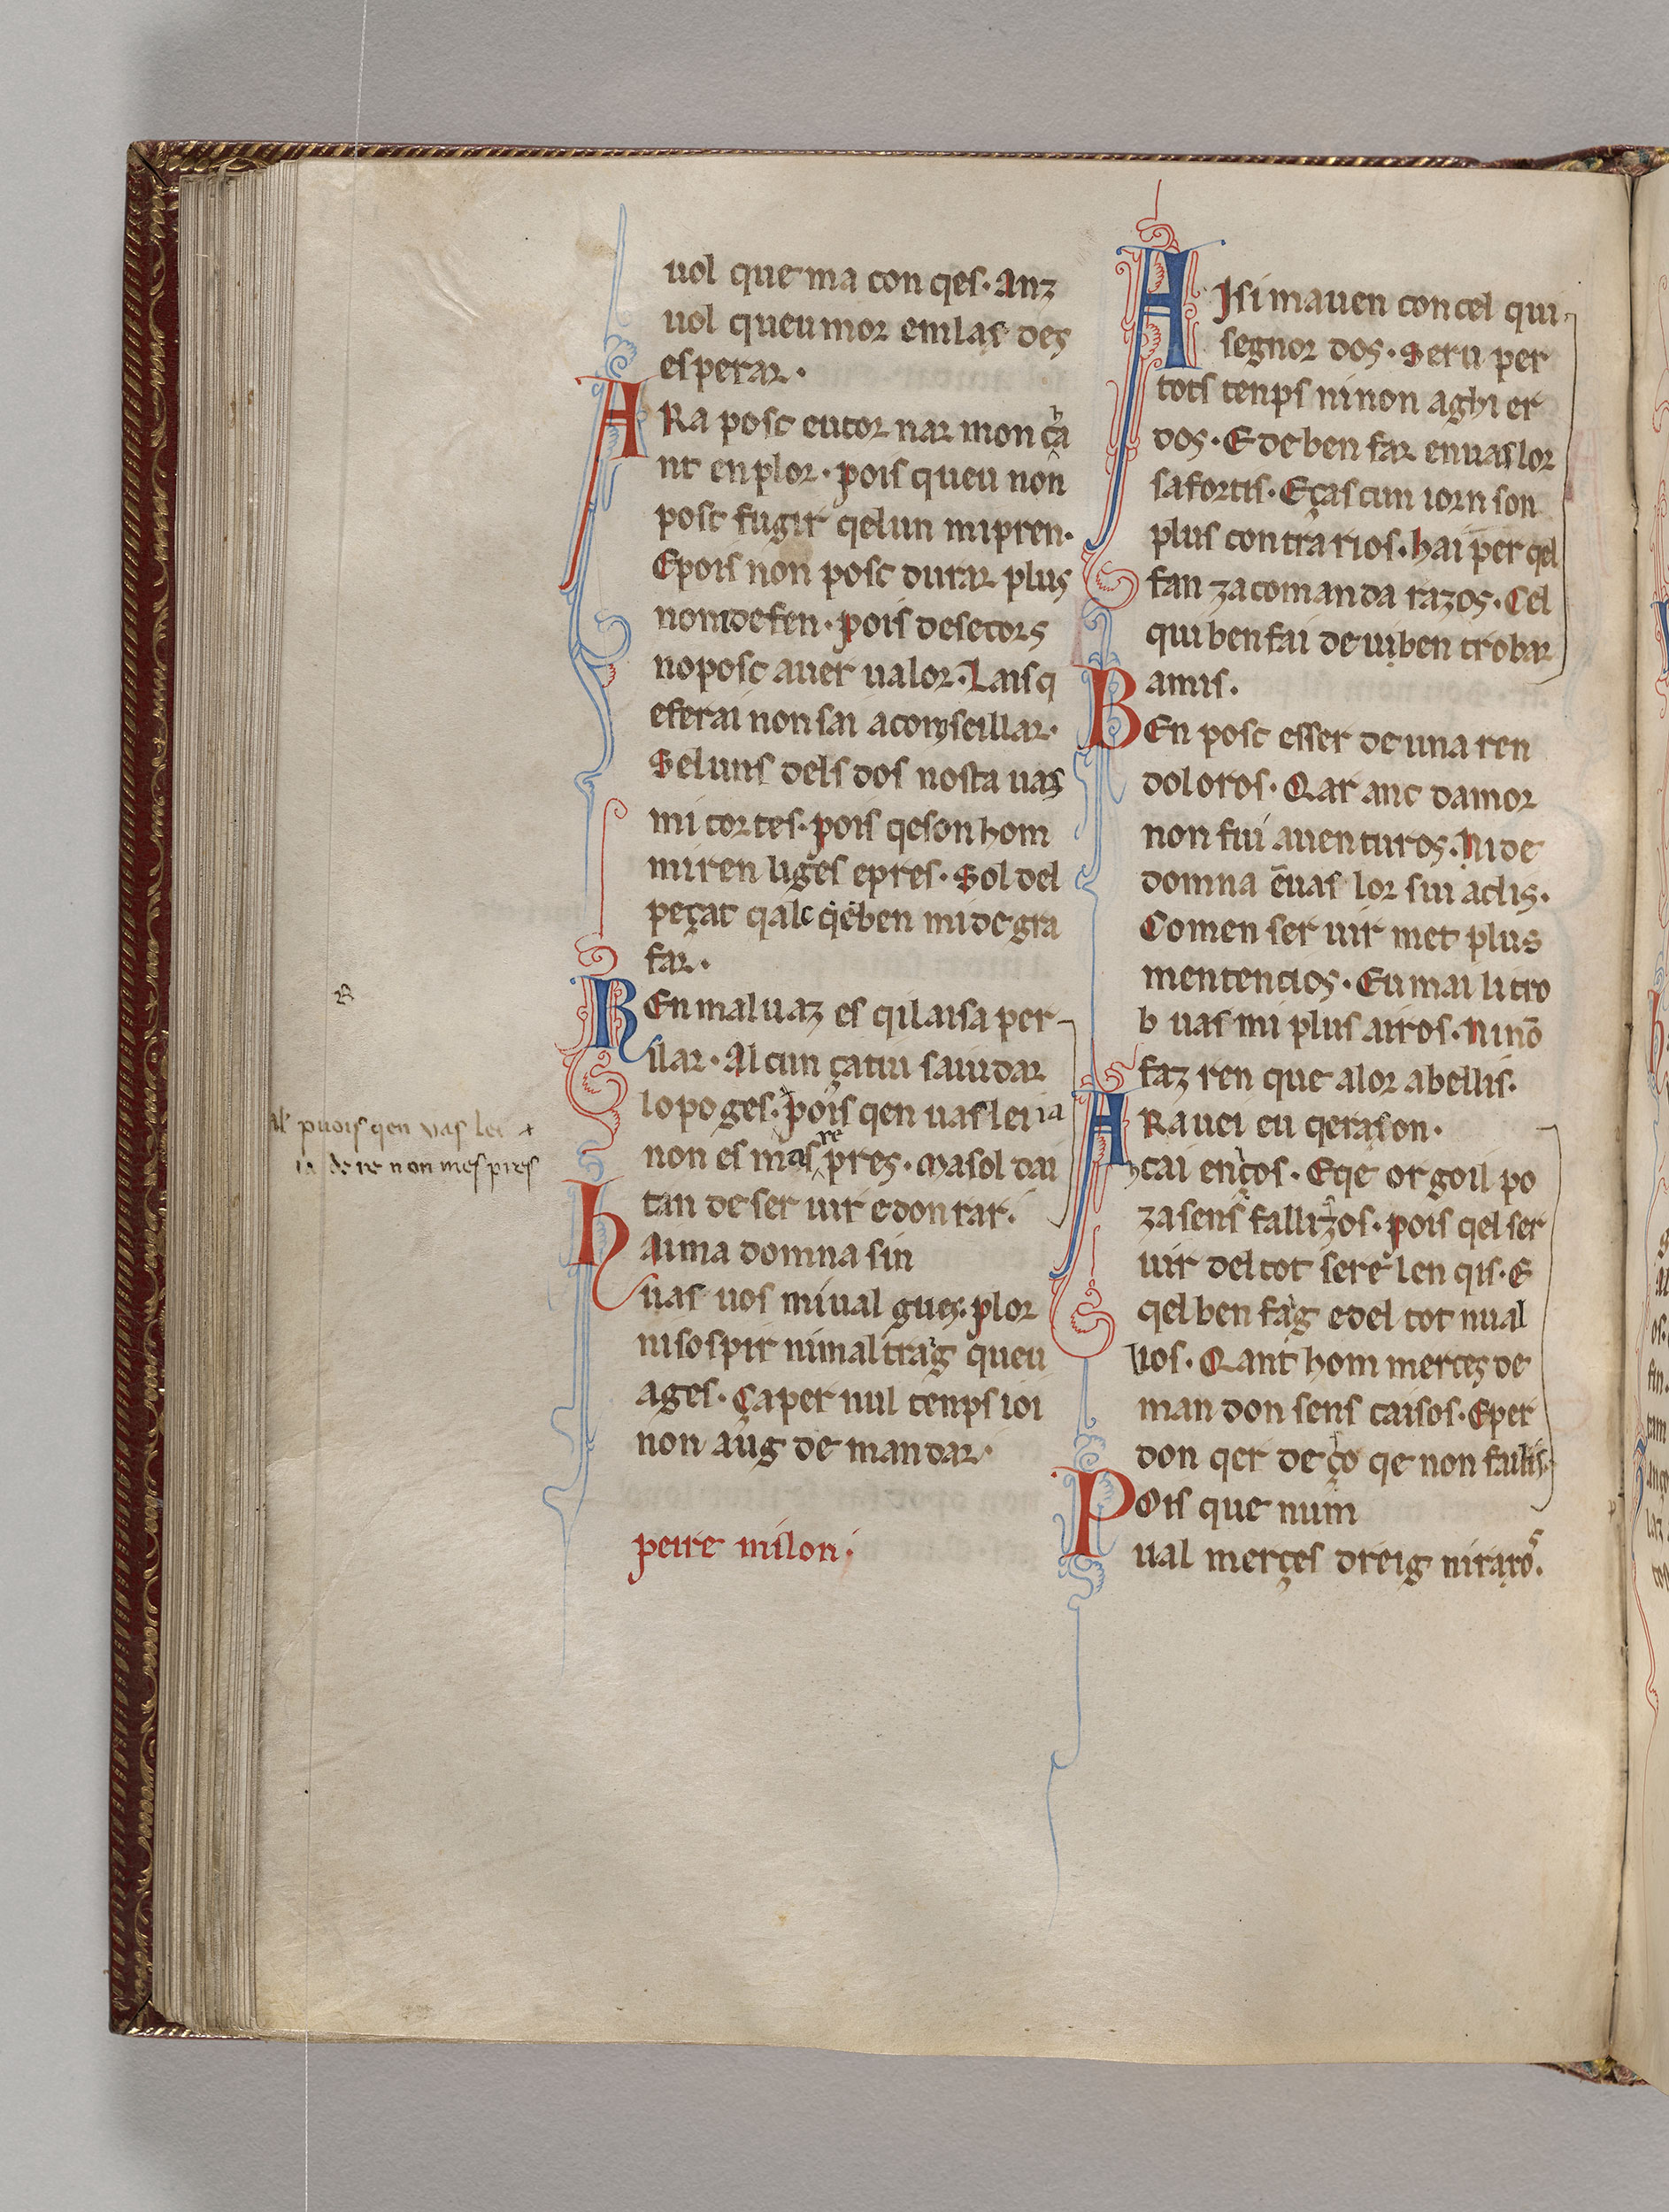 uol que ma con qes. Anz
uol queu mor em las des
esperar.
ARa posc eu tor nar mon cha
nt en plor. pois queu non
posc fugir qelun mi pren.
Epois non posc durar plus
nom defen. pois desetors
no posc auer ualor. Lais q
eferai non sai aconseillar.
Seluns dels dos nosta uas
mi cortes. pois qeson hom
miren liges epres. Sol del
peçat qalc qeben mi de gra
far.
BEn maluaz es qi laisa per
ilar. Al cun çatiu saiudar
lo poges. pois qen uas lei ia
non es mas re pres. Masol dai
tan de ser uir e don rar.
hAima domna sin
uas uos mi ual gues. plor
ni sospir ni mal trag queu
ages. Ça per nul temps ioi
non aug de man dar.
peire milon.
al' puois qen vas lei
ia de re non mespres
AJsi mauen con cel qui
segnor dos. Seru per
tots tenps ni non aghi er
dos. E de ben far en uas lor
sa fortis. Eças cun iorn son
plus contrarios. hai per qel
fan za comanda razos. Cel
qui ben fai deui ben trobar
amis.
BEn posc esser de una ren
doloros. Qar anc damor
non fui auenturos. Ni de
domna ēuas lor sui aclis.
Comen ser uir met plus
mentencios. Eu mai li tro
b uas mi plus airos. Ni nō
faz ren que alor abellis.
ARa uei eu qera son.
cai enços. Eqe orgoil po
za sens fallizos. pois qel ser
uir del tot sere len qis. E
qel ben fag e del tot nual
llos. Qant hom merces de
man don sens caisos. Eper
don qer de ço qe non fallis.
POis que num
ual merçes dreig ni raço.